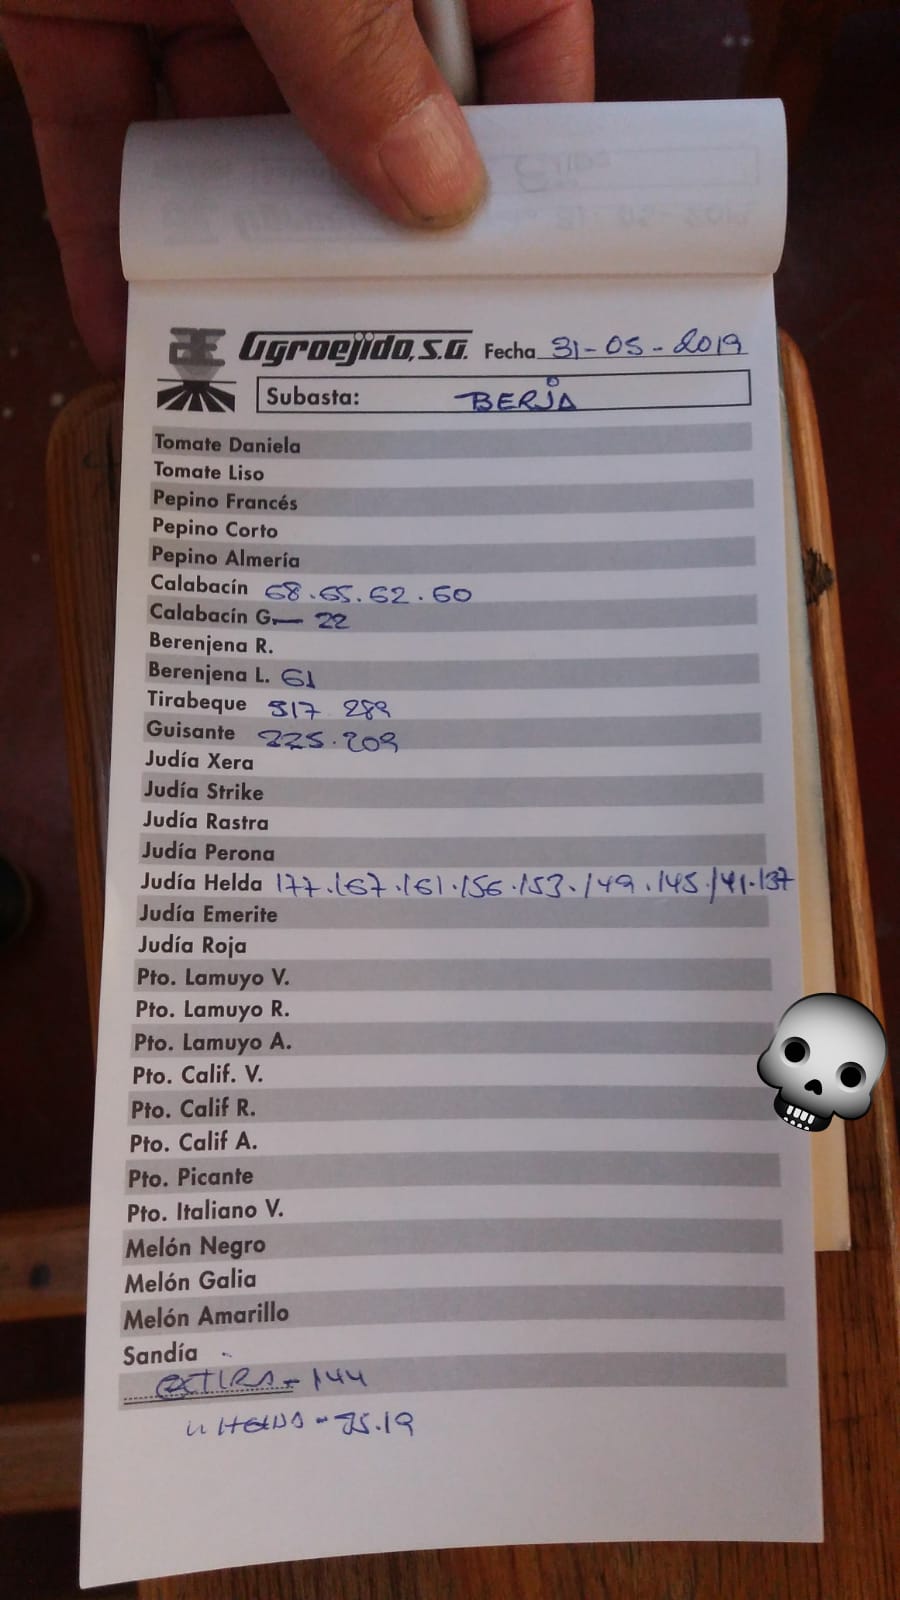 Agroejido, S.A. Fecha 31-05-2019
Subasta: BERJA
Tomate Daniela
Tomate Liso
Pepino Francés
Pepino Corto
Pepino Almería
Calabacín 68.65.62.60
Calabacín G. — 22
Berenjena R.
Berenjena L. 61
Tirabeque 317 289
Guisante 225.209
Judía Xera
Judía Strike
Judía Rastra
Judía Perona
Judía Helda 177.167.161.156.153.149.145.141.137
Judía Emerite
Judía Roja
Pto. Lamuyo V.
Pto. Lamuyo R.
Pto. Lamuyo A.
Pto. Calif. V.
Pto. Calif R.
Pto. Calif A.
Pto. Picante
Pto. Italiano V.
Melón Negro
Melón Galia
Melón Amarillo
Sandía
EXTRA - 144